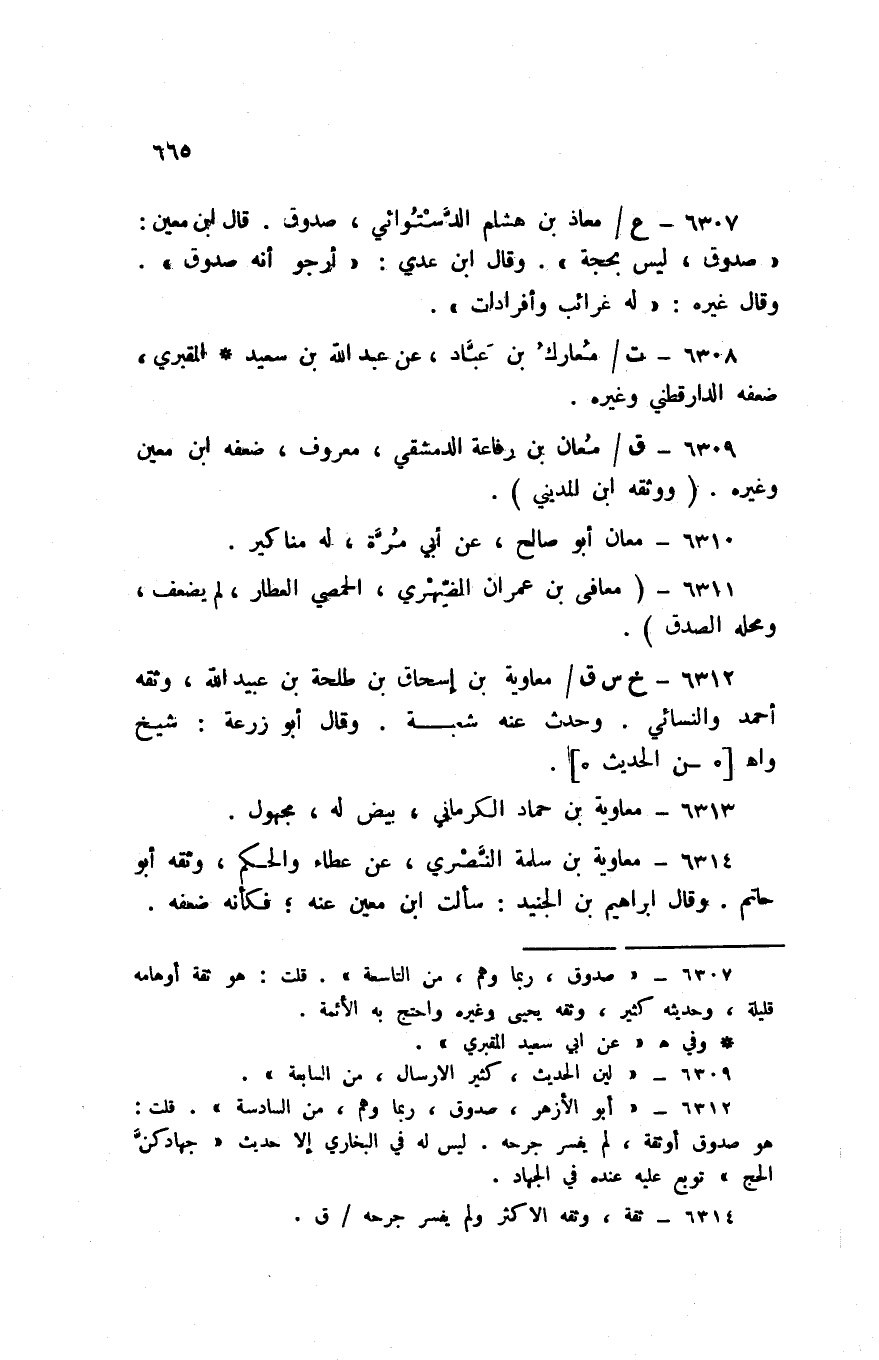 ٦٦٥
٦٣٠٧ – ع / معاذ بن هشام الدَّسْتُوائي ، صدوق . قال ابن معين :
« صدوق ، ليس بحجة » . وقال ابن عدي : « أرجو أنه صدوق » .
وقال غيره : « له غرائب وأفرادات » .
٦٣٠٨ – ت / مُعارك بن عبَّاد ، عن عبد الله بن سعيد * المقبري ،
ضعفه الدارقطني وغيره .
٦٣٠٩ – ق / مُعان بن رفاعة الدمشقي ، معروف ، ضعفه ابن معين
وغيره . ( ووثقه ابن المديني ) .
٦٣١٠ – معان أبو صالح ، عن أبي مُرَّة ، له مناكير .
٦٣١١ – ( معافى بن عمران الفِهْري ، الحمصي العطار ، لم يضعف ،
ومحله الصدق ) .
٦٣١٢ – خ س ق / معاوية بن إسحاق بن طلحة بن عبيد الله ، وثقه
أحمد والنسائي . وحدث عنه شعبـــة . وقال أبو زرعة : شيخ
واه [٥ ــن الحديث ٥] .
٦٣١٣ – معاوية بن حماد الكرماني ، بيض له ، مجهول .
٦٣١٤ – معاوية بن سلمة النَّصْري ، عن عطاء والحكم ، وثقه أبو
حاتم . وقال ابراهيم بن الجنيد : سألت ابن معين عنه ؛ فكأنه ضعفه .
٦٣٠٧ – « صدوق ، ربما وهم ، من التاسعة » . قلت : هو ثقة أوهامه
قليلة ، وحديثه كثير ، وثقه يحيى وغيره واحتج به الأئمة .
* وفي ه « عن ابي سعيد المقبري » .
٦٣٠٩ – « لين الحديث ، كثير الارسال ، من السابعة » .
٦٣١٢ – « أبو الأزهر ، صدوق ، ربما وهم ، من السادسة » . قلت :
هو صدوق أوثقة ، لم يفسر جرحه . ليس له في البخاري إلا حديث « جهادكنَّ
الحج » توبع عليه عنده في الجهاد .
٦٣١٤ – ثقة ، وثقه الاكثر ولم يفسر جرحه / ق .